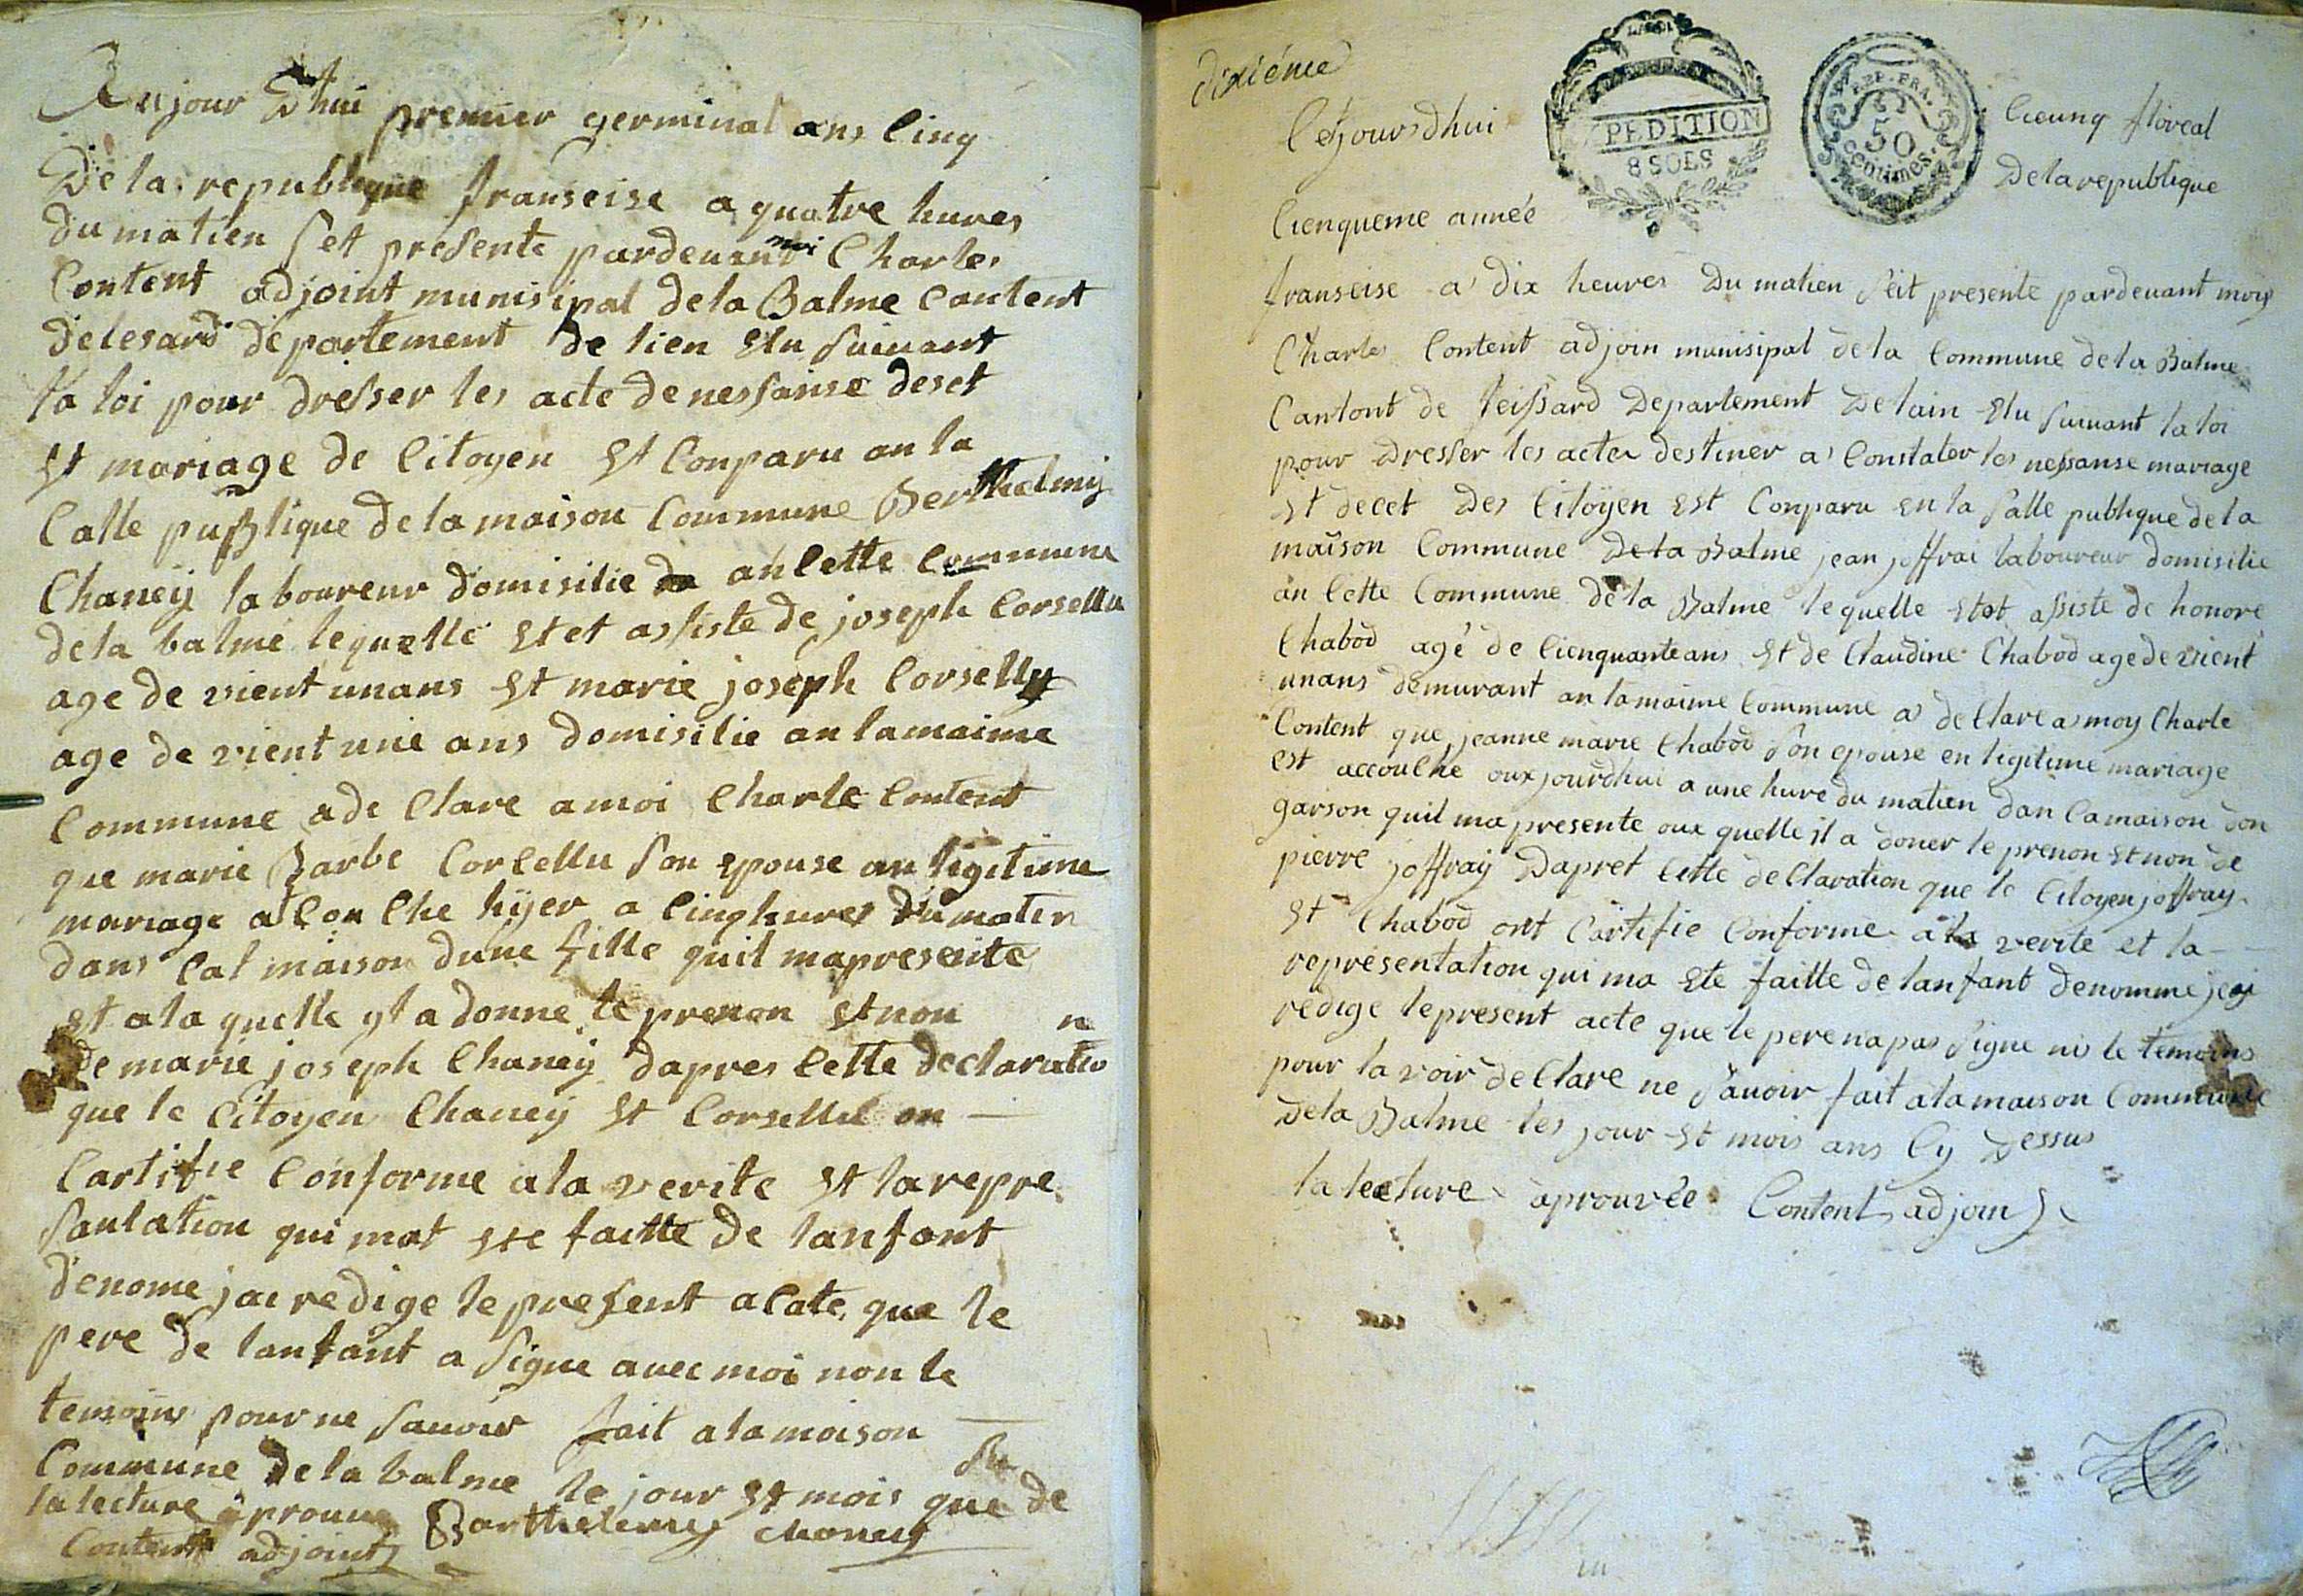 Aujour Dhui premier germinal ans Cinq
De la republique franseise a quatre hures
du matien Set presente pardeuant moi Charles
Content adjoint munisipal de la Balme Cantent
de lesard departement de lien Elu Suiuant
la loi pour dresser les acte de nessanse deset
Et mariage de Citoyen Et Conparu an la
Calle publique de la maison Commune Berthelmy
Chaneÿ laboureur domisilie an Cette Commune
de la balme lequelle Etet assiste de joseph Corsellu
age de vient unans Et marie joseph Corsellu
age de vient une ans domisilie an la maime
Commune a de Clare a moi Charle Content
que marie Barbe Corcellu Son epouse an legitime
mariage at Cou Che hÿer a Cinq hures du matin
dans Cal maison dune fille quil ma presente
Et a la quelle yl a donne le prenon Et non
de marie joseph Chaneÿ dapres Cette declaration
que le Citoyen Chaneÿ Et Corsellu on —
Cartifie Conforme a la verite Et la repre
Santation qui mat ete faitte de lanfant
denome jai redige le present acate que le
pere de lanfant a Signe auec moi non le
temoins pour ne Sauoir fait a la maison —
Commune de la balme le jour Et mois que de Su
la lecture aprouue Barthelemy chaney
Content adjoint
dixiéme
Cejourdhui Cieunq floreal
EXPEDITION
8 SOLS
REP. FRA.
50
centimes.
Cienqueme année De la republique
franseise a dix heures Du matien Seit presente pardeuant moy
Charles Content adjoin munisipal de la Commune de la Balme
Cantont de Seissard Departement De lain Elu Suiuant la loi
pour Dresser les actes destiner a Constater les nessanse mariage
Et decet Des Citoÿen Est Conparu En la Salle publique de la
maison Commune De la Balme jean joffrai laboureur domisilie
an Cette Commune de la Balme lequelle Etot assiste de honoré
Chabod agé de Cienquante ans Et de Claudine Chabod age de vient
unans demurant an la maime Commune a de Clare a moy Charle
Content que jeanne marie Chabod Son epouse en legitime mariage
est accouche ouxjourdhui a une hure du matien dan Ca maison don
garson quil ma presente oux quelle il a doner le prenon Et non de
pierre joffraÿ Dapret Cette de Claration que le Citoyen joffray
Et Chabod ont Cartifie Conforme a la verite et la —
representation qui ma Ete faitte de lanfant denomme jeai
redige le present acte que le pere na pas Signe ni le temoins
pour la voir de Clare ne Sauoir fait a la maison Commune
De la Balme les jour Et mois ans Cy Dessus
la lecture aprouvée Content adjoin